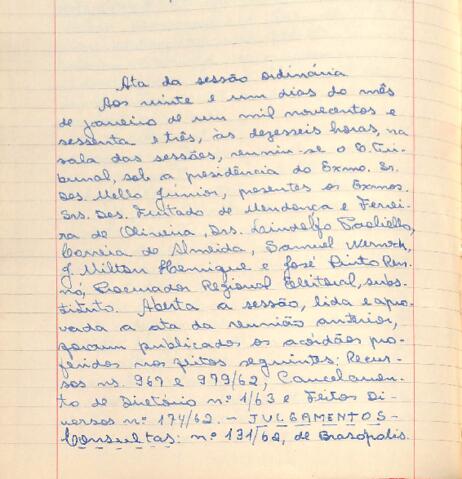 Ata da sessão ordinária
Aos vinte e um dias do mês
de janeiro de um mil novecentos e
sessenta e três, às dezesseis horas, na
sala das sessões, reuniu-se o E. Tri-
bunal, sob a presidência do Exmo. Sr.
Des. Mello Júnior, presentes os Exmos.
Srs. Des. Furtado de Mendonça e Ferrei-
ra de Oliveira, Drs. Lindolfo Paoliello,
Correia de Almeida, Samuel Werneck,
J. Milton Henrique e José Pinto Ren-
nó, Procurador Regional Eleitoral, subs-
tituto. Aberta a sessão, lida e apro-
vada a ata da reunião anterior,
foram publicados os acórdãos pro-
feridos nos feitos seguintes: Recur-
sos ns. 967 e 979/62, Cancelamen-
to de Diretório nº 1/63 e Feitos Di-
versos nº 174/62. - JULGAMENTOS -
Consultas: nº 131/62, de Brasópolis.